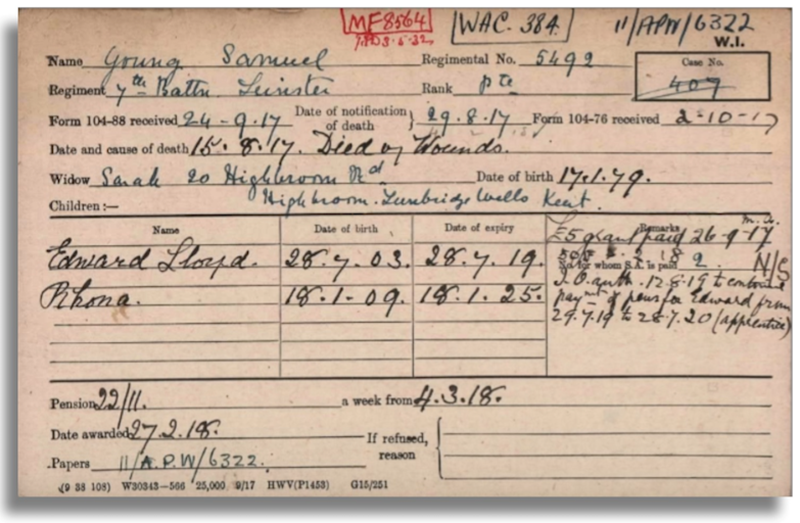 MF8564 WAC. 384. 11/APW/6322
W.I.
Name Young Samuel Regimental No. 5492 Case No.
Regiment 7th Battn. Leinster Rank Pte 407
Form 104-88 received 24-9-17 Date of notification of death } 29.8.17 Form 104-76 received 2-10-17
Date and cause of death 15.8.17. Died of Wounds.
Widow Sarah 20 Highbroom Rd Date of birth 17.1.79.
Children:— Highbroom. Tunbridge Wells Kent.
Name Date of birth Date of expiry Remarks
£5 grant paid 26-9-17
Edward Lloyd. 28.7.03. 28.7.19.
No. for whom S.A. is paid 2. N/S
Rhona. 18.1.09. 18.1.25.
12.8.19 to continue
paymt of pens for Edward from
29.7.19 to 28.7.20 (apprentice)
Pension 22/11. a week from 4.3.18.
Date awarded 27.2.18. If refused, reason {
Papers 11/A.P.W/6322.
(9 38 108) W30343—566 25,000 9/17 HWV(P1453) G15/251